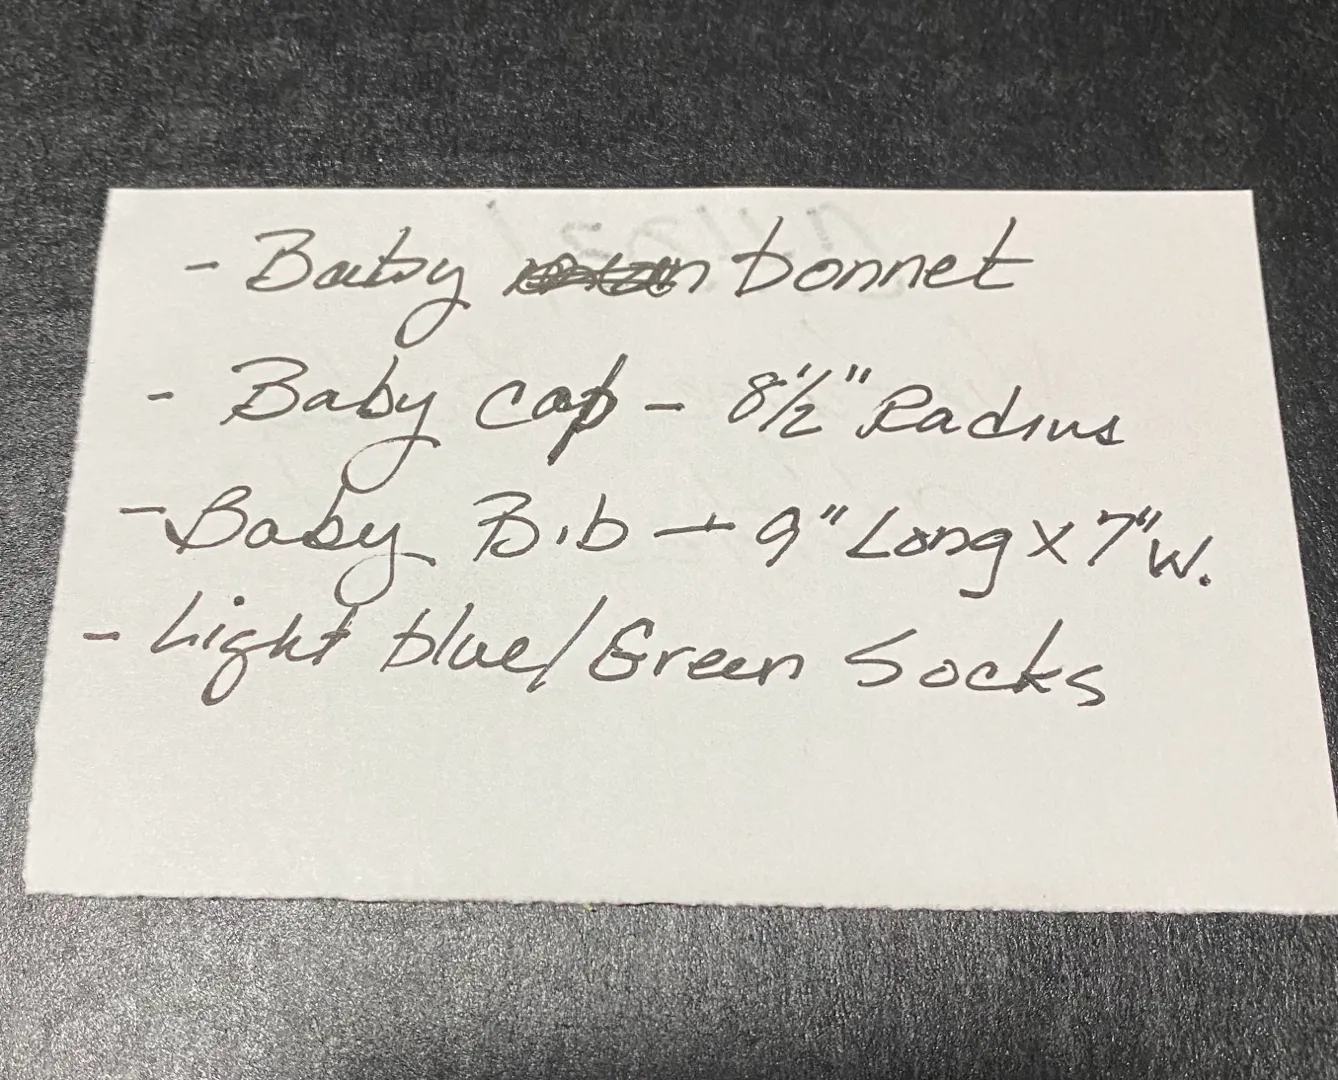 - Baby bonnet
- Baby cap - 8 1/2" Radius
- Baby Bib - 9" Long x 7" W.
- Light blue/Green Socks